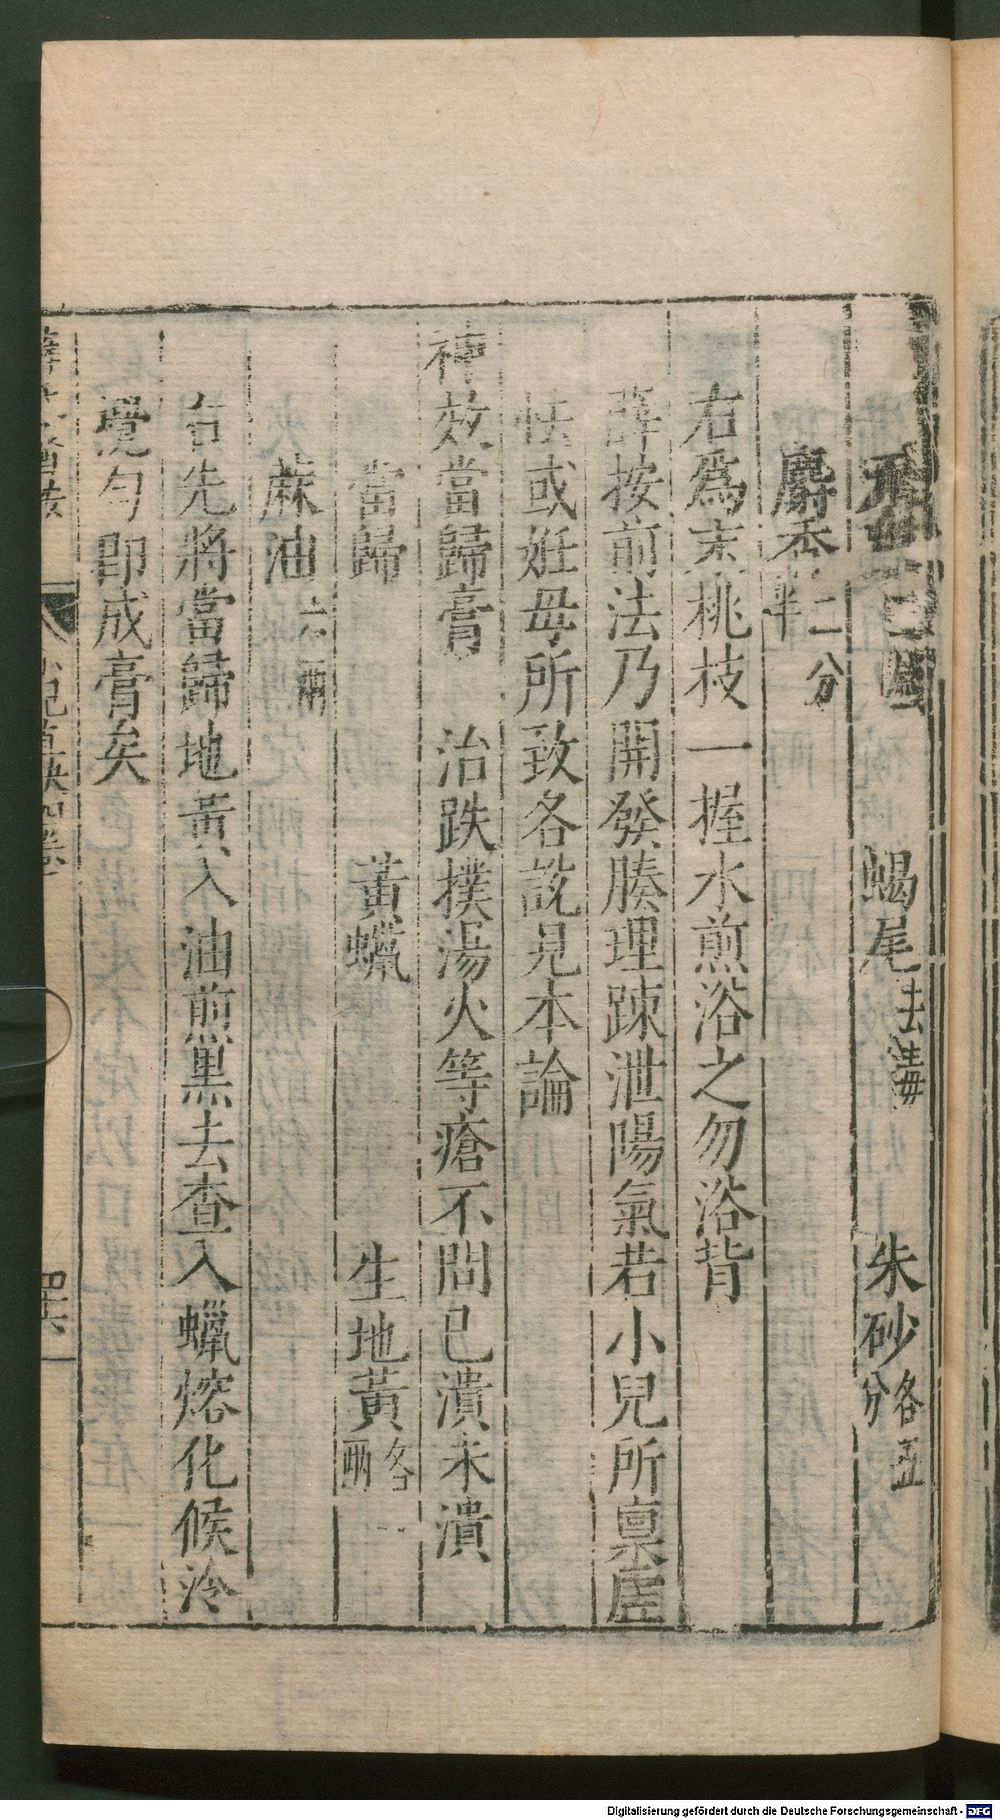 蝎尾去毒　朱砂各五分
麝香二分半
右爲末桃枝一握水煎浴之勿浴背
薛按前法乃開發腠理踈泄陽氣若小兒所稟尫
怯或妊母所致各說見本論
神效當歸膏　治跌撲湯火等瘡不問已潰未潰
當歸　黃蠟　生地黃各一兩
蔴油六兩
右先將當歸地黃入油煎黑去査入蠟熔化候冷
攪勻即成膏矣
Digitalisierung gefördert durch die Deutsche Forschungsgemeinschaft - DFG